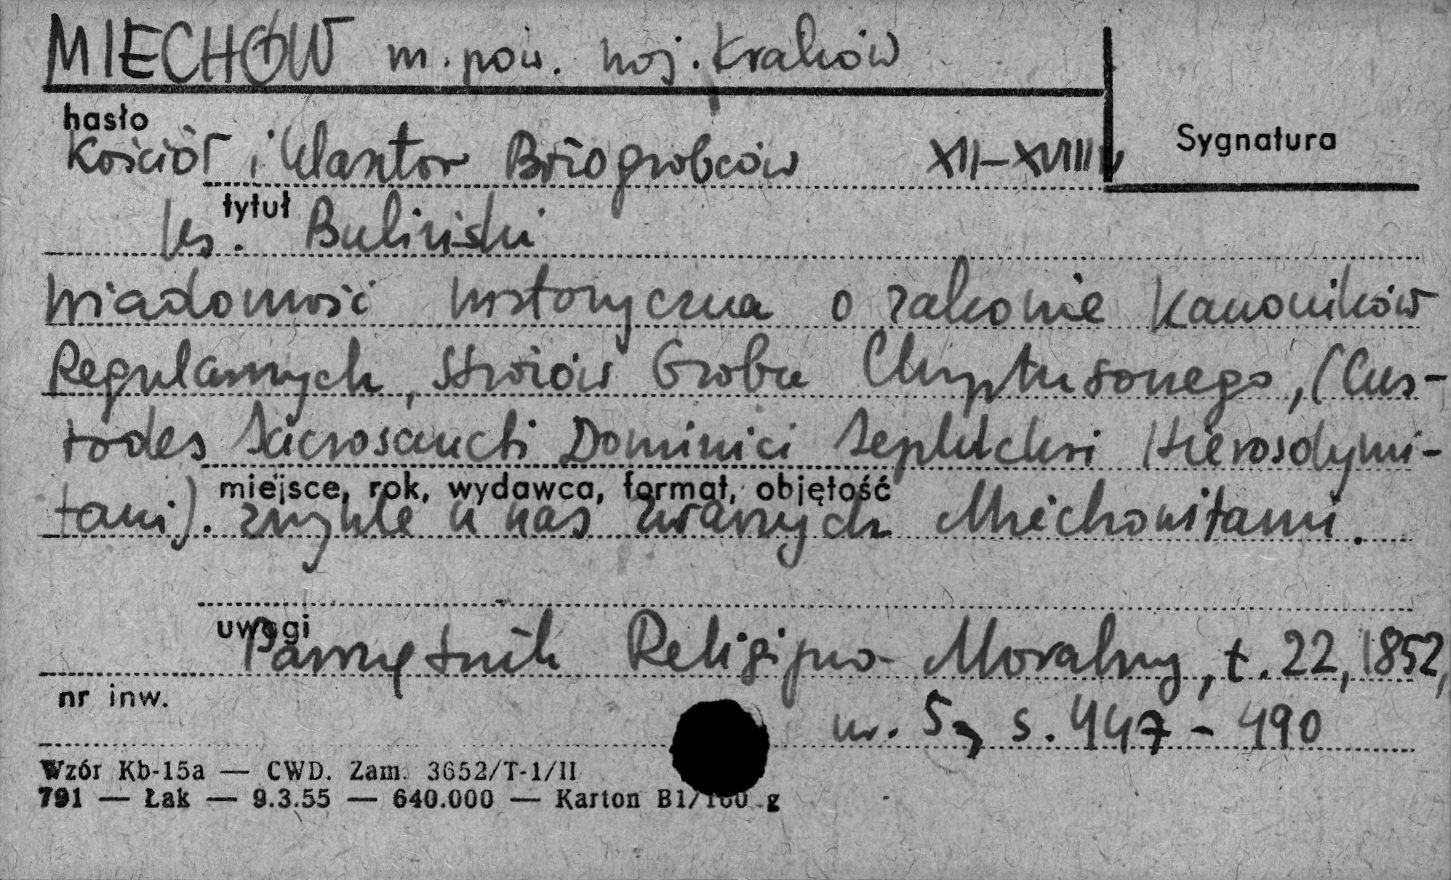 MIECHÓW m. pow. woj. Kraków
hasło
Sygnatura
Kościół i klasztor Bożogrobców XII–XVIII w
tytuł
ks. Buliński
Wiadomość historyczna o zakonie Kanoników
Regularnych, Stróżów Grobu Chrystusowego, (Cus-
todes Sacrosancti Dominici Sepulchri Hierosolymi-
miejsce, rok, wydawca, format, objętość
tani). zwykle u nas zwanych Miechowitami.
uwagi
Pamiętnik Religijno-Moralny, t. 22, 1852,
nr inw.
nr. 5, s. 447 – 490
Wzór Kb-15a — CWD. Zam. 3652/T-1/II
791 — Łak — 9.3.55 — 640.000 — Karton B1/160 g